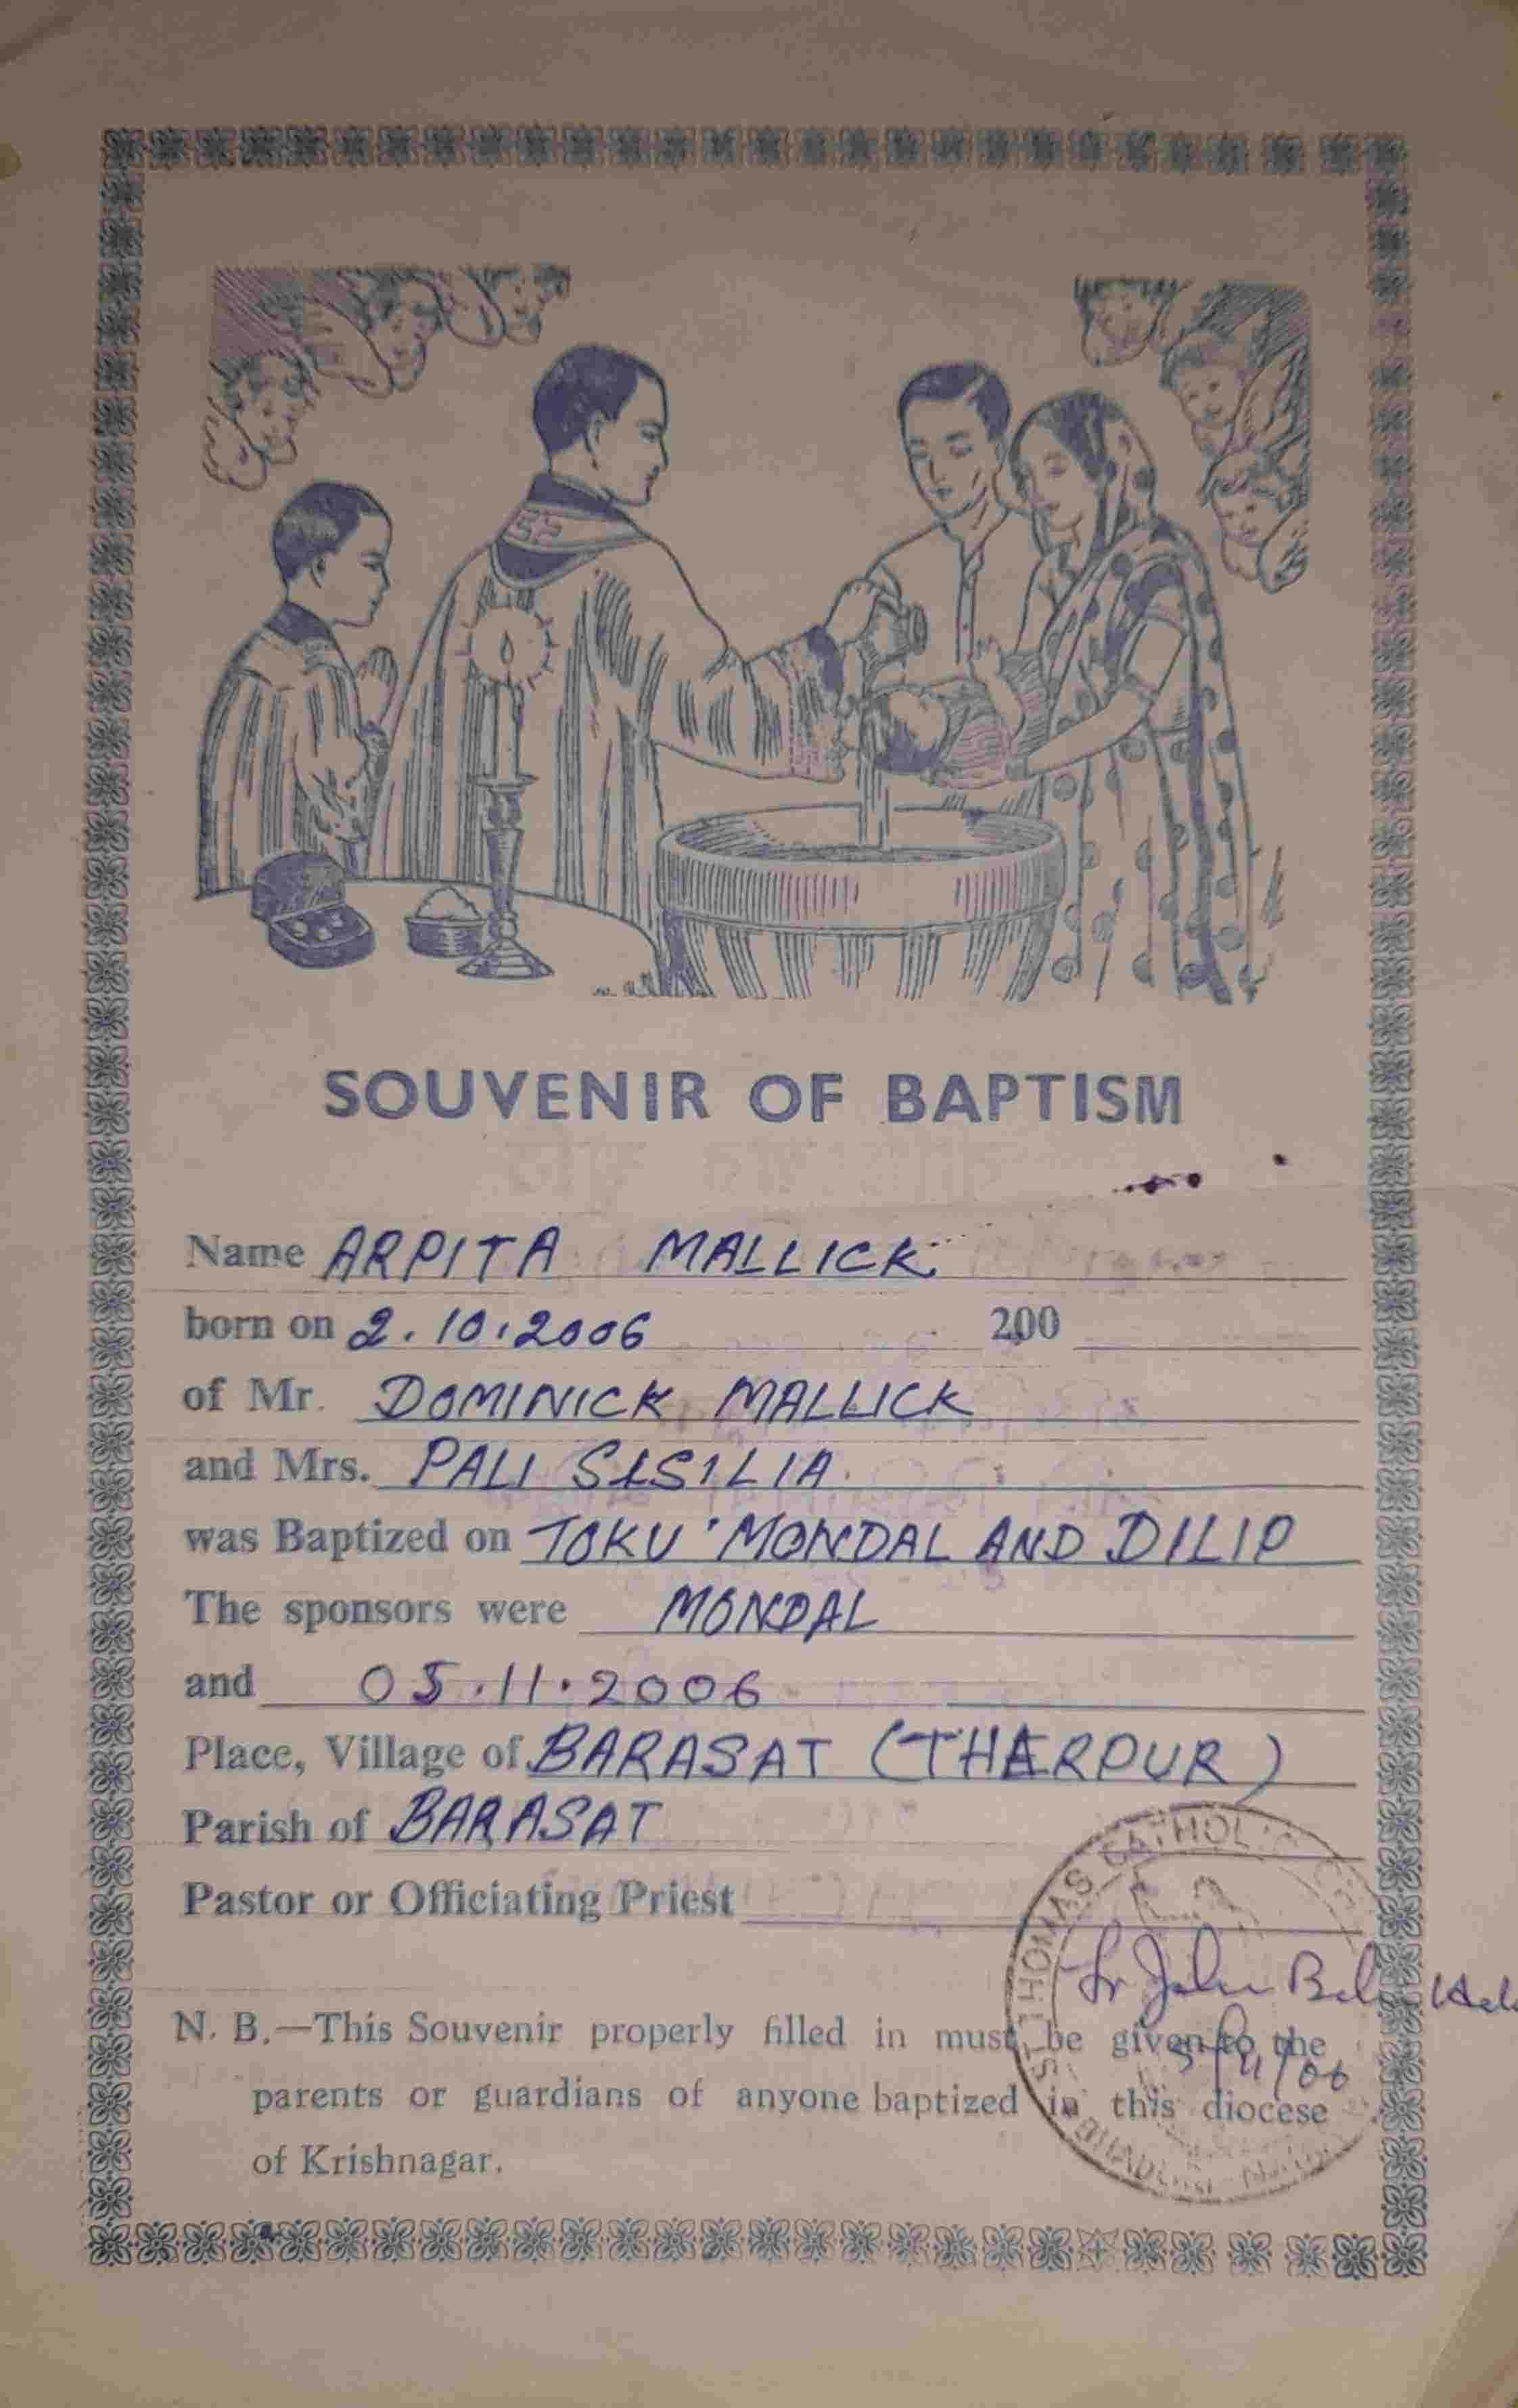 SOUVENIR OF BAPTISM
Name ARPITA MALLICK
born on 2.10.2006 200
of Mr. DOMINICK MALLICK
and Mrs. PALI SISILIA.
was Baptized on TOKU MONDAL AND DILIP
The sponsors were MONDAL
and 05.11.2006
Place, Village of BARASAT (THARPUR)
Parish of BARASAT
Pastor or Officiating Priest
ST. THOMAS CATHOLIC
Fr John
5/11/06
N. B.—This Souvenir properly filled in must be given to the
parents or guardians of anyone baptized in this diocese
of Krishnagar.